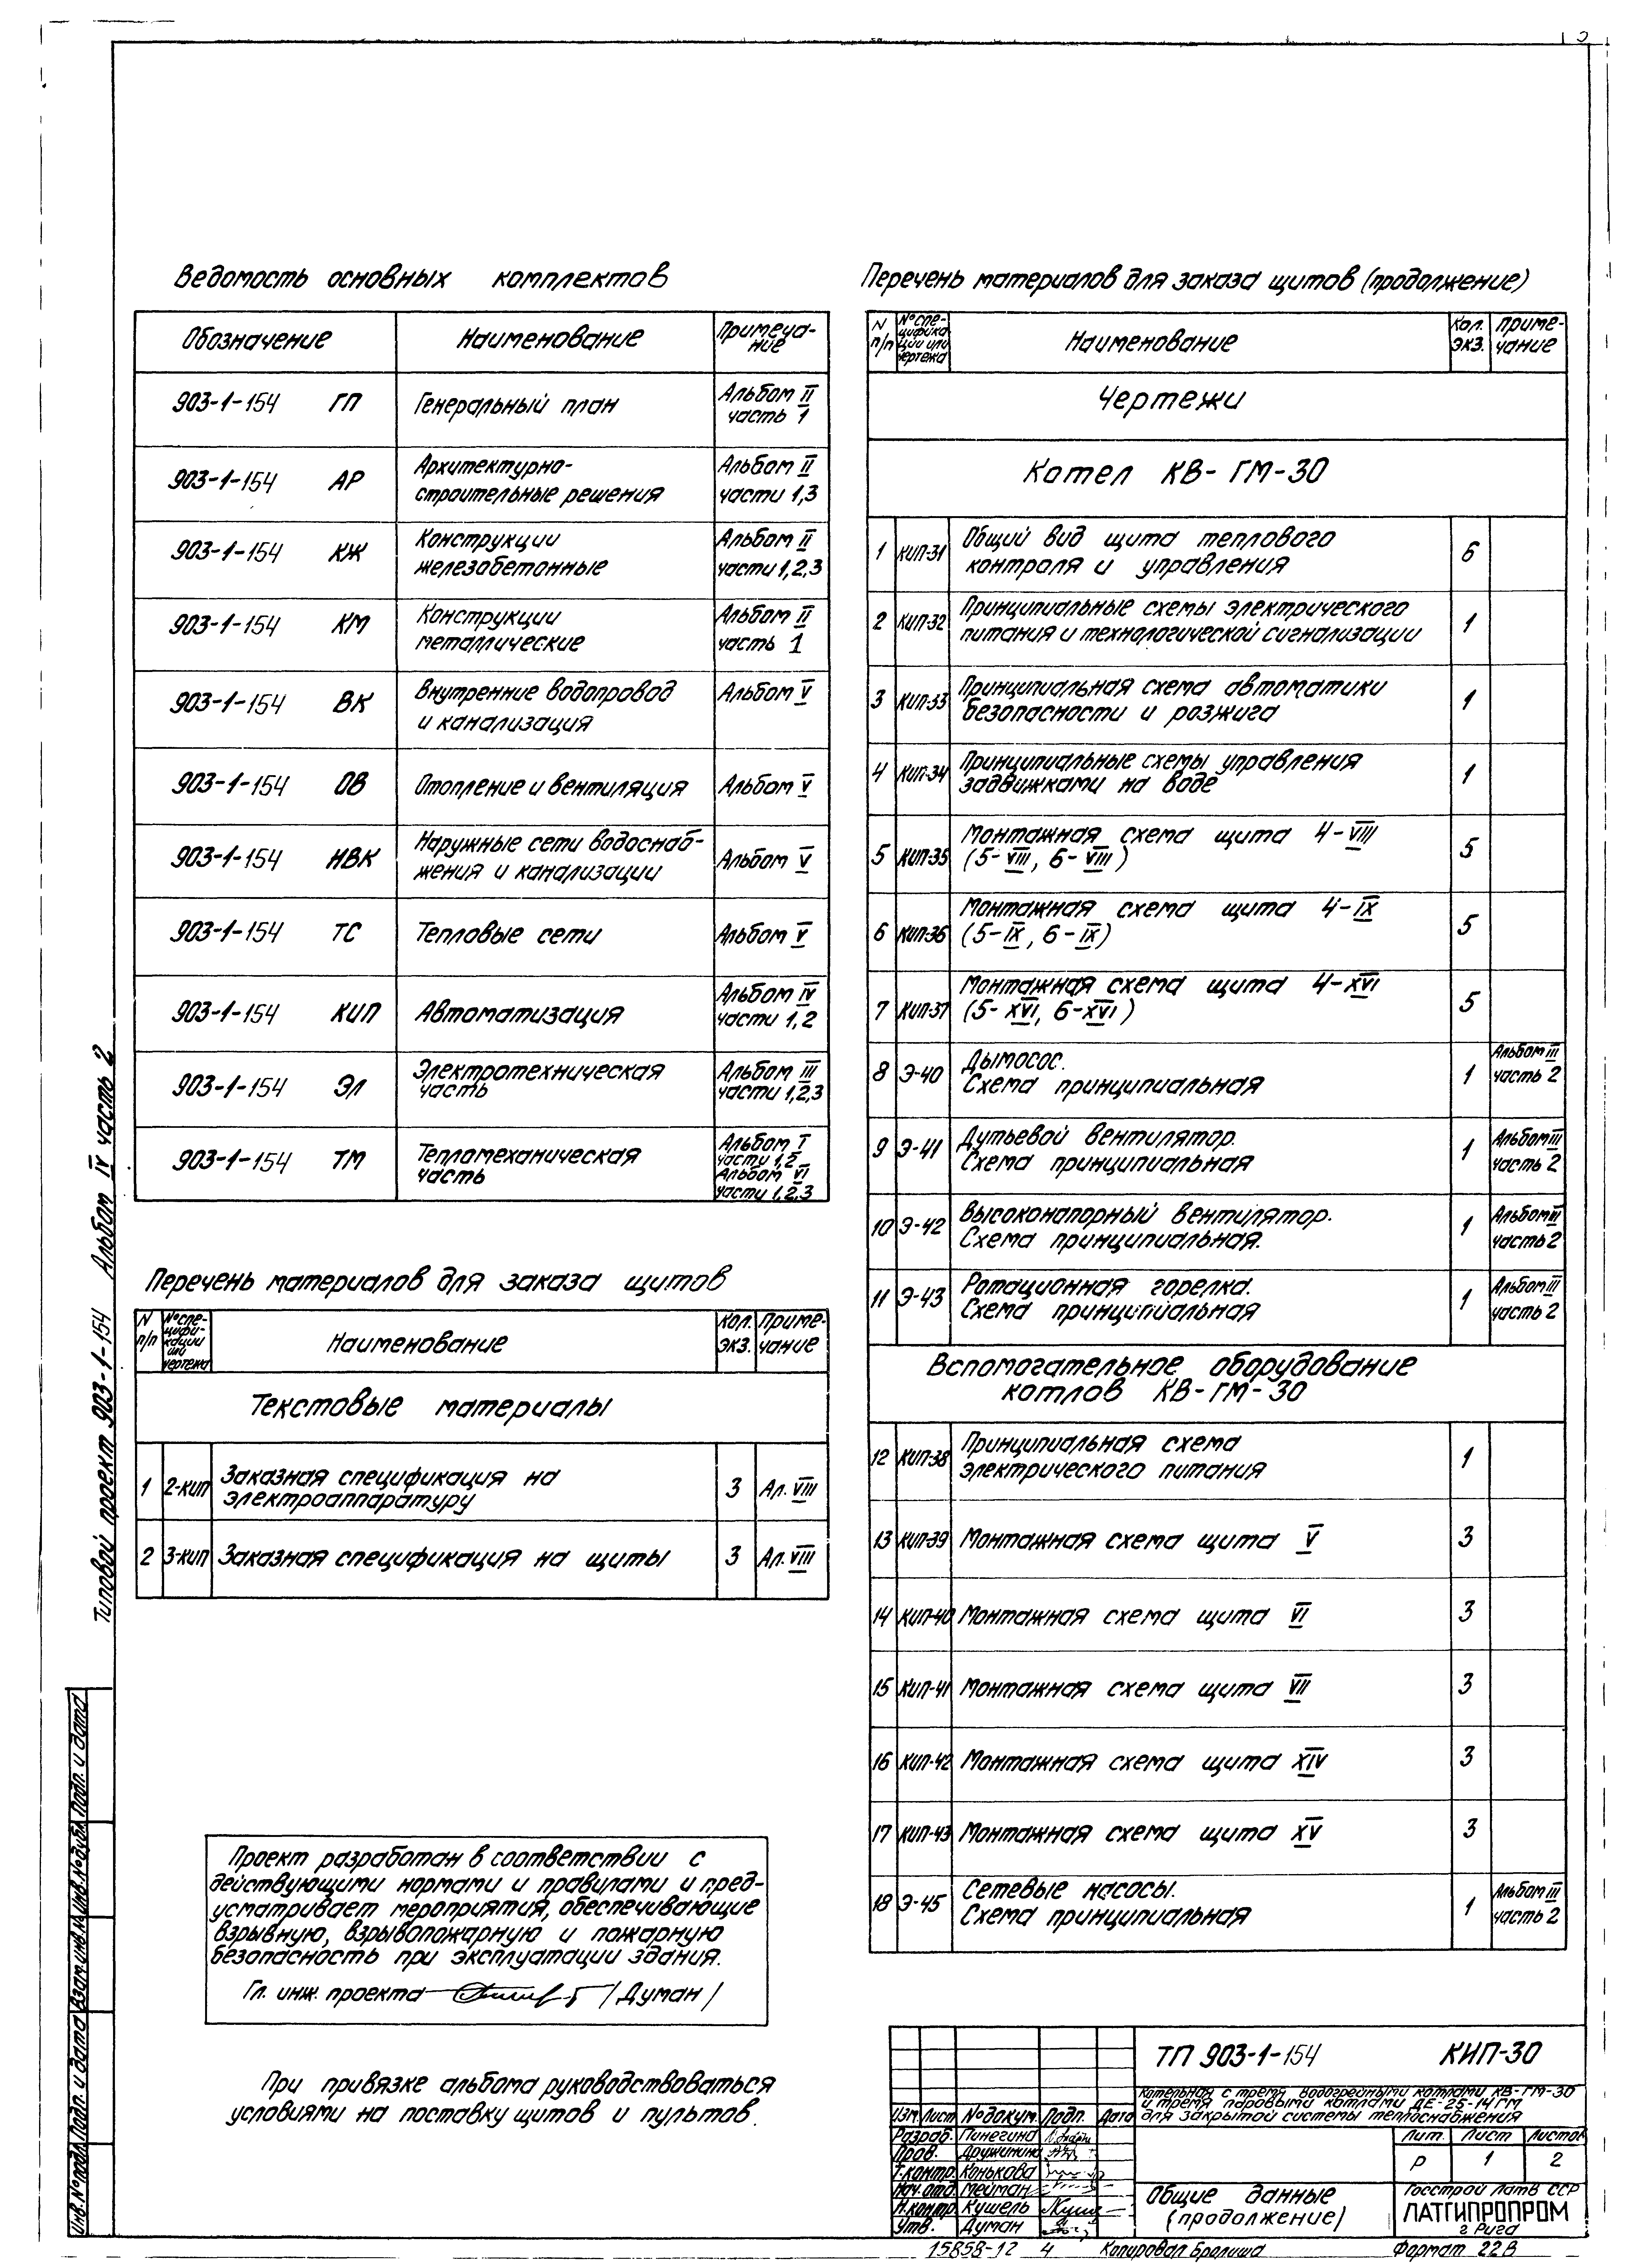 Ведомость основных комплектов
Обозначение Наименование Примеча-
ние
903-1-154 ГП Генеральный план Альбом II
часть 1
903-1-154 АР Архитектурно-
строительные решения Альбом II
части 1,3
903-1-154 КЖ Конструкции
железобетонные Альбом II
части 1,2,3
903-1-154 КМ Конструкции
металлические Альбом II
часть 1
903-1-154 ВК Внутренние водопровод
и канализация Альбом V
903-1-154 ОВ Отопление и вентиляция Альбом V
903-1-154 НВК Наружные сети водоснаб-
жения и канализации Альбом V
903-1-154 ТС Тепловые сети Альбом V
903-1-154 КИП Автоматизация Альбом IV
части 1,2
903-1-154 ЭЛ Электротехническая
часть Альбом III
части 1,2,3
903-1-154 ТМ Тепломеханическая
часть Альбом I
части 1,2
Альбом VI
части 1,2,3
Перечень материалов для заказа щитов
N
п/п №спе-
цифи-
кации
или
чертежа Наименование Кол.
экз. Приме-
чание
Текстовые материалы
1 2-КИП Заказная спецификация на
электроаппаратуру 3 Ал. VIII
2 3-КИП Заказная спецификация на щиты 3 Ал. VIII
Проект разработан в соответствии с
действующими нормами и правилами и пред-
усматривает мероприятия, обеспечивающие
взрывную, взрывопожарную и пожарную
безопасность при эксплуатации здания.
Гл. инж. проекта /Думан/
При привязке альбома руководствоваться
условиями на поставку щитов и пультов.
Перечень материалов для заказа щитов (продолжение)
N
п/п №спе-
цифика-
ции или
чертежа Наименование Кол.
экз. Приме-
чание
Чертежи
Котел КВ-ГМ-30
1 КИП-31 Общий вид щита теплового
контроля и управления 6
2 КИП-32 Принципиальные схемы электрического
питания и технологической сигнализации 1
3 КИП-33 Принципиальная схема автоматики
безопасности и розжига 1
4 КИП-34 Принципиальные схемы управления
задвижками на воде 1
5 КИП-35 Монтажная схема щита 4-VIII
(5-VIII, 6-VIII) 5
6 КИП-36 Монтажная схема щита 4-IX
(5-IX, 6-IX) 5
7 КИП-37 Монтажная схема щита 4-XVI
(5-XVI, 6-XVI) 5
8 Э-40 Дымосос.
Схема принципиальная 1 Альбом III
часть 2
9 Э-41 Дутьевой вентилятор.
Схема принципиальная 1 Альбом III
часть 2
10 Э-42 Высоконапорный вентилятор.
Схема принципиальная. 1 Альбом III
часть 2
11 Э-43 Ротационная горелка.
Схема принципиальная 1 Альбом III
часть 2
Вспомогательное оборудование
котлов КВ-ГМ-30
12 КИП-38 Принципиальная схема
электрического питания 1
13 КИП-39 Монтажная схема щита V 3
14 КИП-40 Монтажная схема щита VI 3
15 КИП-41 Монтажная схема щита VII 3
16 КИП-42 Монтажная схема щита XIV 3
17 КИП-43 Монтажная схема щита XV 3
18 Э-45 Сетевые насосы.
Схема принципиальная 1 Альбом III
часть 2
ТП 903-1-154 КИП-30
Котельная с тремя водогрейными котлами КВ-ГМ-30
и тремя паровыми котлами ДЕ-25-14ГМ
для закрытой системы теплоснабжения
Изм. Лист №докум. Подп. Дата
Разраб. Пинегина
Пров. Дружинина
Т.контр. Конькова
Нач.отд. Мейман
Н.контр. Кушель
Утв. Думан
Лит. Лист Листов
Р 1 2
Общие данные
(продолжение)
Госстрой Латв ССР
ЛАТГИПРОПРОМ
г Рига
15858-12 4 Копировал Бролиша Формат 22В
Типовой проект 903-1-154 Альбом IV часть 2
Инв.№подл. Подп. и дата Взам.инв.№ Инв.№дубл. Подп. и дата